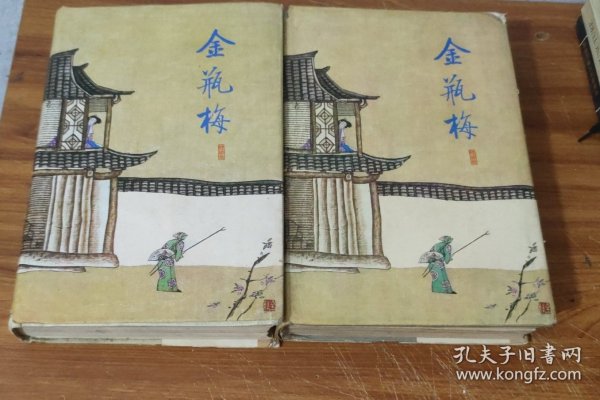 金瓶梅
金瓶梅
孔夫子旧书网
www.kongfz.com